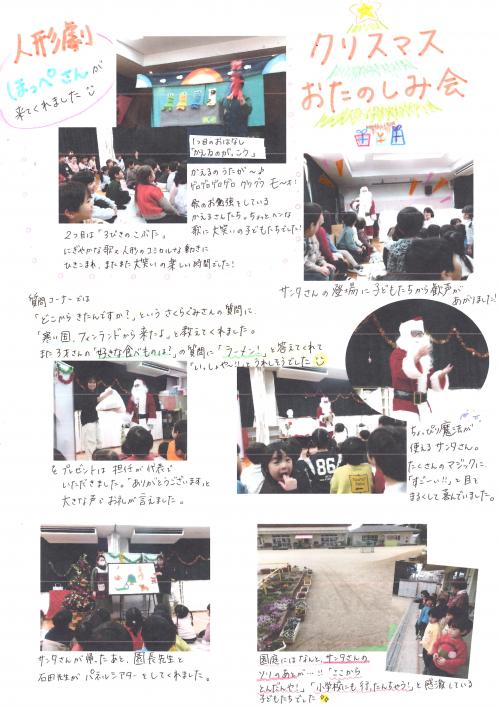 人形劇
ほっぺさんが
来てくれました
クリスマス
おたのしみ会
1つ目のおはなし
「かえるのがっこう」
かえるのうたが〜♪
ゲロゲロゲロゲロ グワグワ モ〜オ!
歌のお勉強をしている
かえるさんたち。ちょっとヘンな
歌に大笑いの子どもたちでした!
2つ目は「3びきのこぶた」
にぎやかな歌と人形のコミカルな動きに
ひきこまれ、またまた大笑いの楽しい時間でした!
サンタさんの登場に子どもたちから歓声が
あがりました!
質問コーナーでは
「どこからきたんですか?」というさくらぐみさんの質問に、
「寒い国、フィンランドから来たよ」と教えてくれました。
また3才さんの「好きな食べものは?」の質問に「ラーメン!」と答えてくれて
「いっしょや〜!!」とうれしそうでした
ちょっぴり魔法が
使えるサンタさん。
たくさんのマジックに
「すごーい!!」と目を
まるくして喜んでいました。
プレゼントは担任が代表で
いただきました。「ありがとうございます」と
大きな声でお礼が言えました。
86
サンタさんが帰ったあと、園長先生と
石田先生がパネルシアターをしてくれました。
園庭にはなんと、サンタさんの
ソリのあとが…!!「ここから
とんだんや!」「小学校にも行ったんちゃう!」と感激している
子どもたちでした